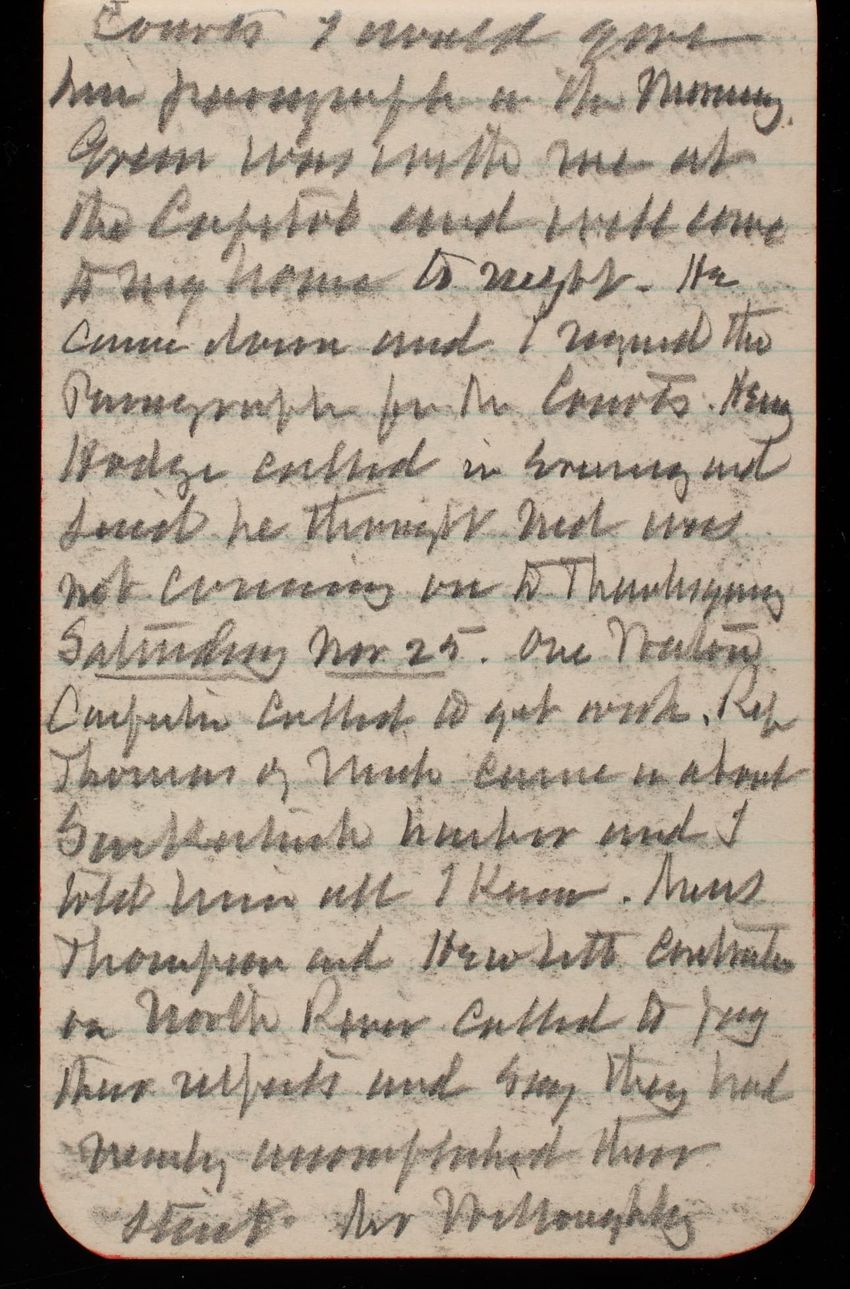 Courts I would give
him paragraph in the Morning.
Green was with me at
the Capitol and will come
to my house to night. He
came down and I signed the
Paragraph for the Courts. Henry
Hodge called in evening and
said he thought Ned was
not coming on to Thanksgiving
Saturday Nov 25. One Walton
Carpenter called to get work. Rep
Thomas of Mich came in about
harbor and I
told him all I knew. Messrs
Thompson and Hewlett Contractors
on North River called to pay
their respects and say they had
nearly accomplished their
stint. Mr Willoughby